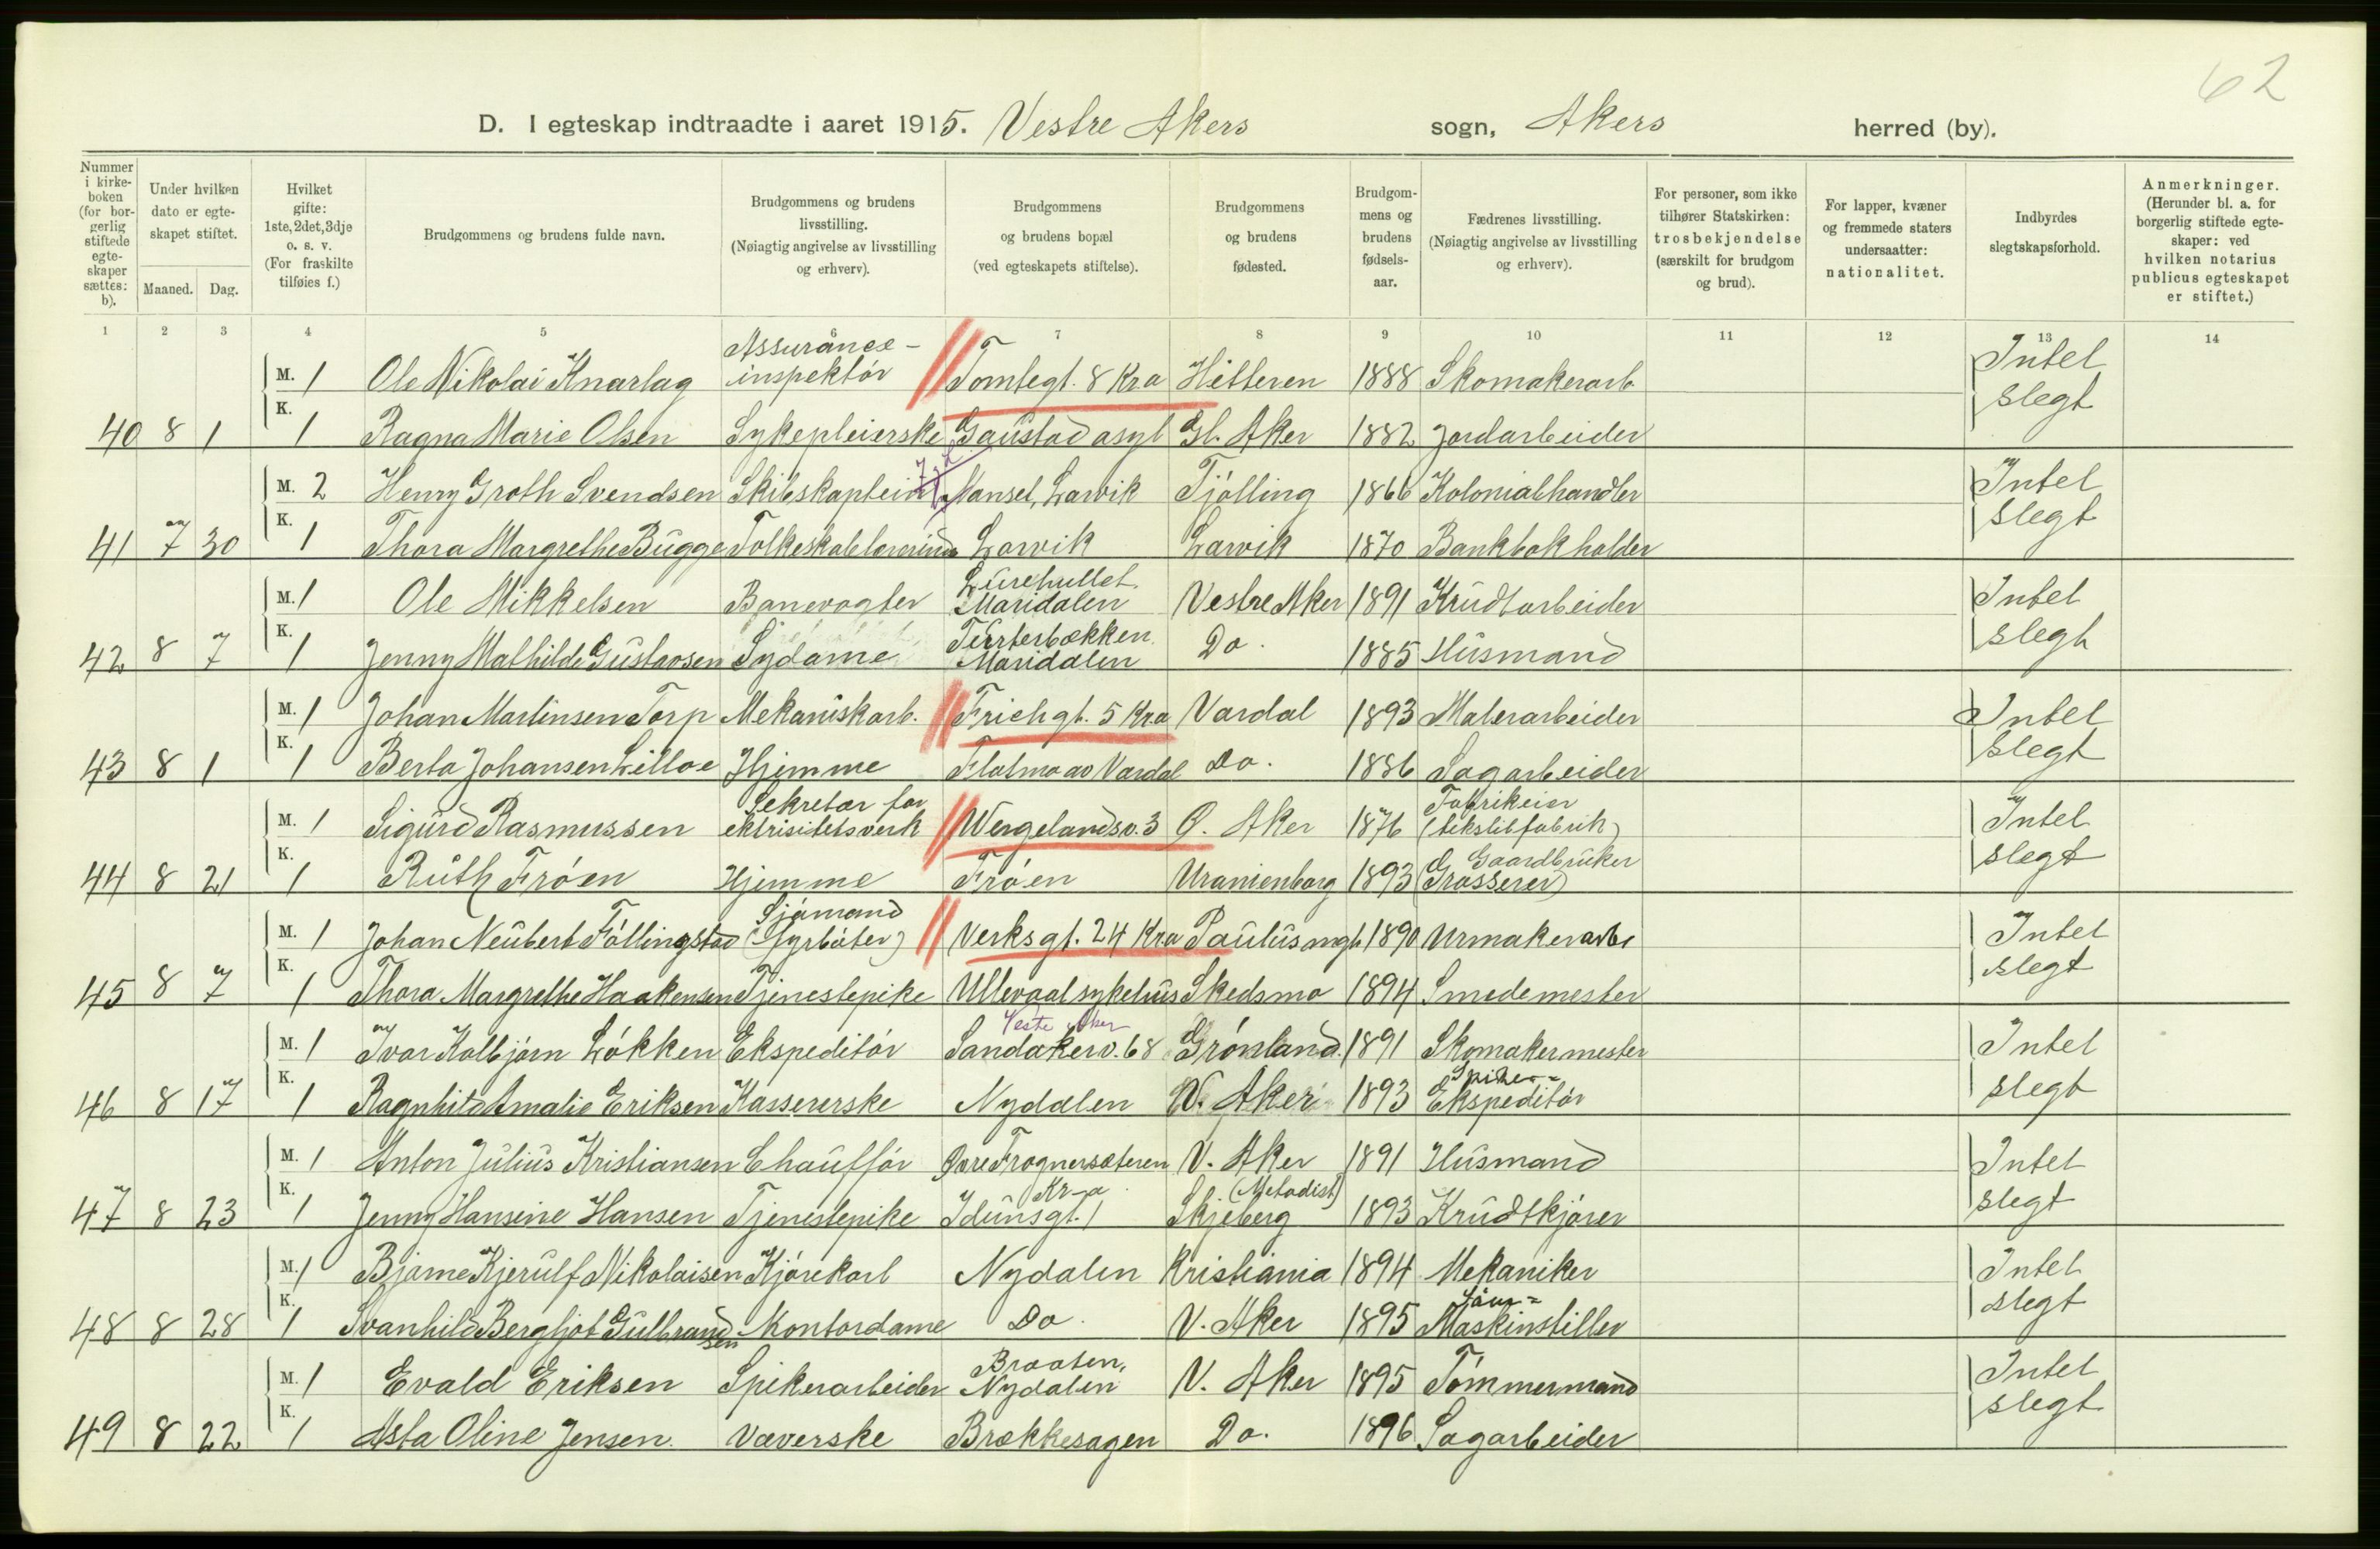 62
D. I egteskap indtraadte i aaret 1915. Vestre Akers sogn, Akers herred (by).
Nummer i kirke-boken (for bor-gerlig stiftede egte-skaper sættes: b).
Under hvilken dato er egte-skapet stiftet.
Maaned. Dag.
Hvilket gifte: 1ste, 2det, 3dje o. s. v. (For fraskilte tilføies f.)
Brudgommens og brudens fulde navn.
Brudgommens og brudens livsstilling. (Nøiagtig angivelse av livsstilling og erhverv).
Brudgommens og brudens bopæl (ved egteskapets stiftelse).
Brudgommens og brudens fødested.
Brudgom-mens og brudens fødsels-aar.
Fædrenes livsstilling. (Nøiagtig angivelse av livsstilling og erhverv).
For personer, som ikke tilhører Statskirken: trosbekjendelse (særskilt for brudgom og brud).
For lapper, kvæner og fremmede staters undersaatter: nationalitet.
Indbyrdes slegtskapsforhold.
Anmerkninger. (Herunder bl. a. for borgerlig stiftede egte-skaper: ved hvilken notarius publicus egteskapet er stiftet.)
1 2 3 4 5 6 7 8 9 10 11 12 13 14
M. 1 Ole Nikolai Knarlag Assurance-inspektör Tomtegt. 8 Kr.a Hitteren 1888 Skomakerarb Intet
40 8 1 K. 1 Ragna Marie Olsen Sykepleierske Gaustad asyl Gl. Aker 1882 Jordarbeider slegt
M. 2 Henry Groth Svendsen Skibskaptein Nanset, Larvik Tjölling 1866 Kolonialhandler Intet
41 7 30 K. 1 Thora Margrethe Bugge Folkeskolelærerinde Larvik Larvik 1870 Bankbokholder slegt
M. 1 Ole Mikkelsen Banevogter Maridalen Vestre Aker 1891 Krudtarbeider Intet
42 8 7 K. 1 Jenny Mathilde Gustavsen Sydame Tærterbækken Maridalen Do. 1885 Husmand slegt
M. 1 Johan Martinsen Torp Mekaniskarb. Frichgt. 5 Kr.a Vardal 1893 Malerarbeider Intet
43 8 1 K. 1 Berta Johansen Lilloe Hjemme Flatmo av Vardal Do. 1886 Sagarbeider slegt
M. 1 Sigurd Rasmussen Sekretær for ektrisitetsverk Wergelandsv. 3 Ø. Aker 1876 Fabrikeier (tekstilfabrik) Intet
44 8 21 K. 1 Ruth Fröen Hjemme Fröen Uranienborg 1893 Gaardbruker (Grosserer) slegt
M. 1 Johan Neubert Föllingstad Sjömand (fyrböter) Verksgt. 24 Kra Paulusmgh. 1890 Urmakerarbe Intet
45 8 7 K. 1 Thora Margrethe Haakensen Tjenestepike Ullevaal sykehus Skedsmo 1894 Smedemester slegt
Vestre Aker
M. 1 Ivar Kolbjörn Lökken Ekspeditör Sandakerv. 68 Grönland. 1891 Skomakermester Intet
46 8 17 K. 1 Ragnhild Amalie Eriksen Kassererske Nydalen V. Aker 1893 Spiker- Ekspeditör slegt
M. 1 Anton Julius Kristiansen Chafför Øvre Frognersæteren V. Aker 1891 Husmand Intet
47 8 23 K. 1 Jenny Hansine Hansen Tjenestepike Idunsgt. 1 Kr-a Skjeberg (Metodist) 1893 Krudtkjörer slegt
M. 1 Bjarne Kjerulf Nikolaisen Kjörekarl Nydalen Kristiania 1894 Mekaniker Intet
48 8 28 K. 1 Svanhild Bergljot Gulbrandsen Kontordame Do. V. Aker 1895 Maskinstiller slegt
M. 1 Evald Eriksen Spikerarbeider Braaten, Nydalen V. Aker 1895 Tömmermand Intet
49 8 22 K. 1 Asta Oline Jensen Væverske Brækkesagen Do. 1896 Sagarbeider slegt